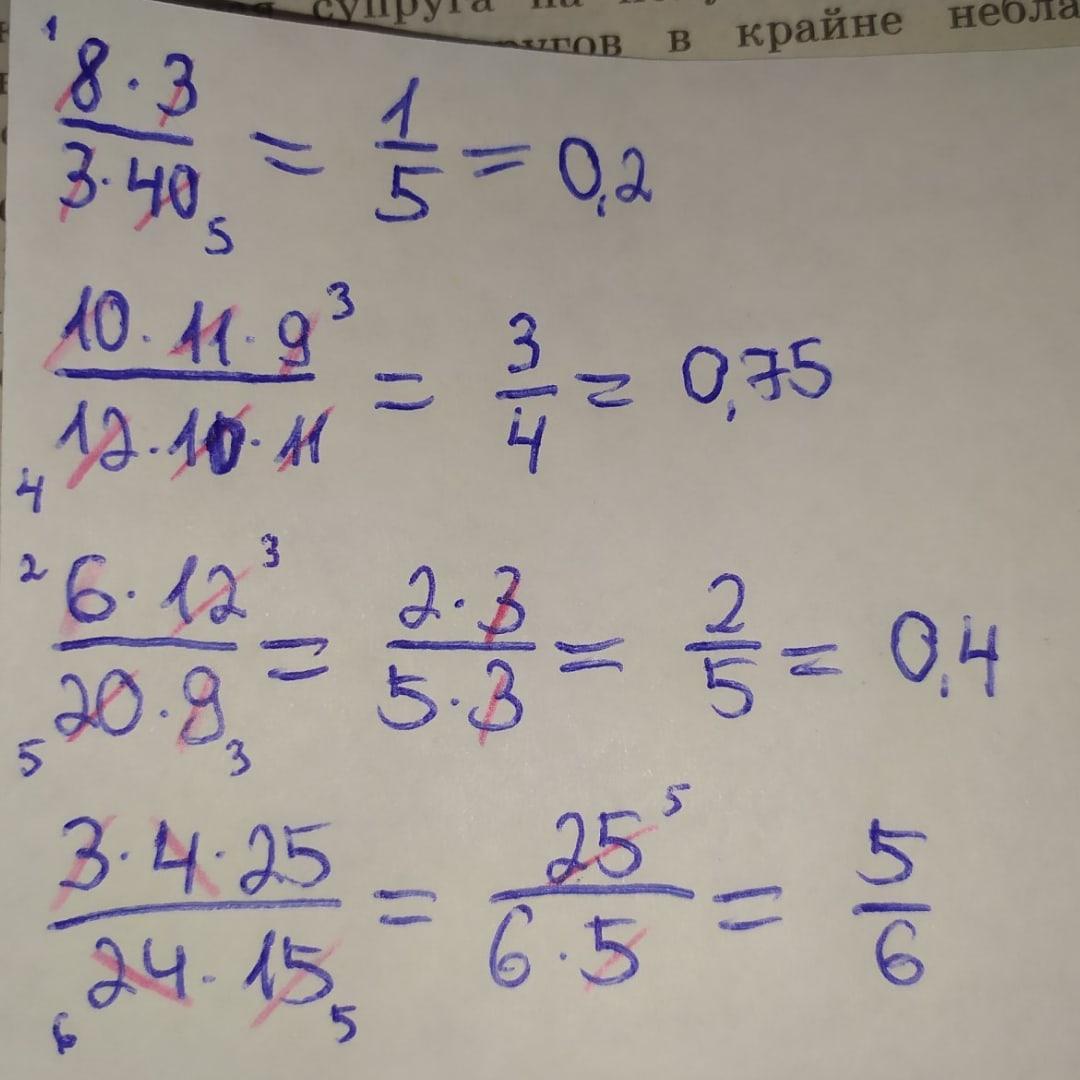 супруга на
ругов в крайне небла
1
8 · 3
3 · 40 = 1/5 = 0,2
5
10 · 11 · 9 3
12 · 10 · 11 = 3/4 = 0,75
4
2 6 · 12 3
20 · 9 = 2 · 3 / 5 · 3 = 2/5 = 0,4
5 3
3 · 4 · 25
24 · 15 = 25 5 / 6 · 5 = 5/6
6 5